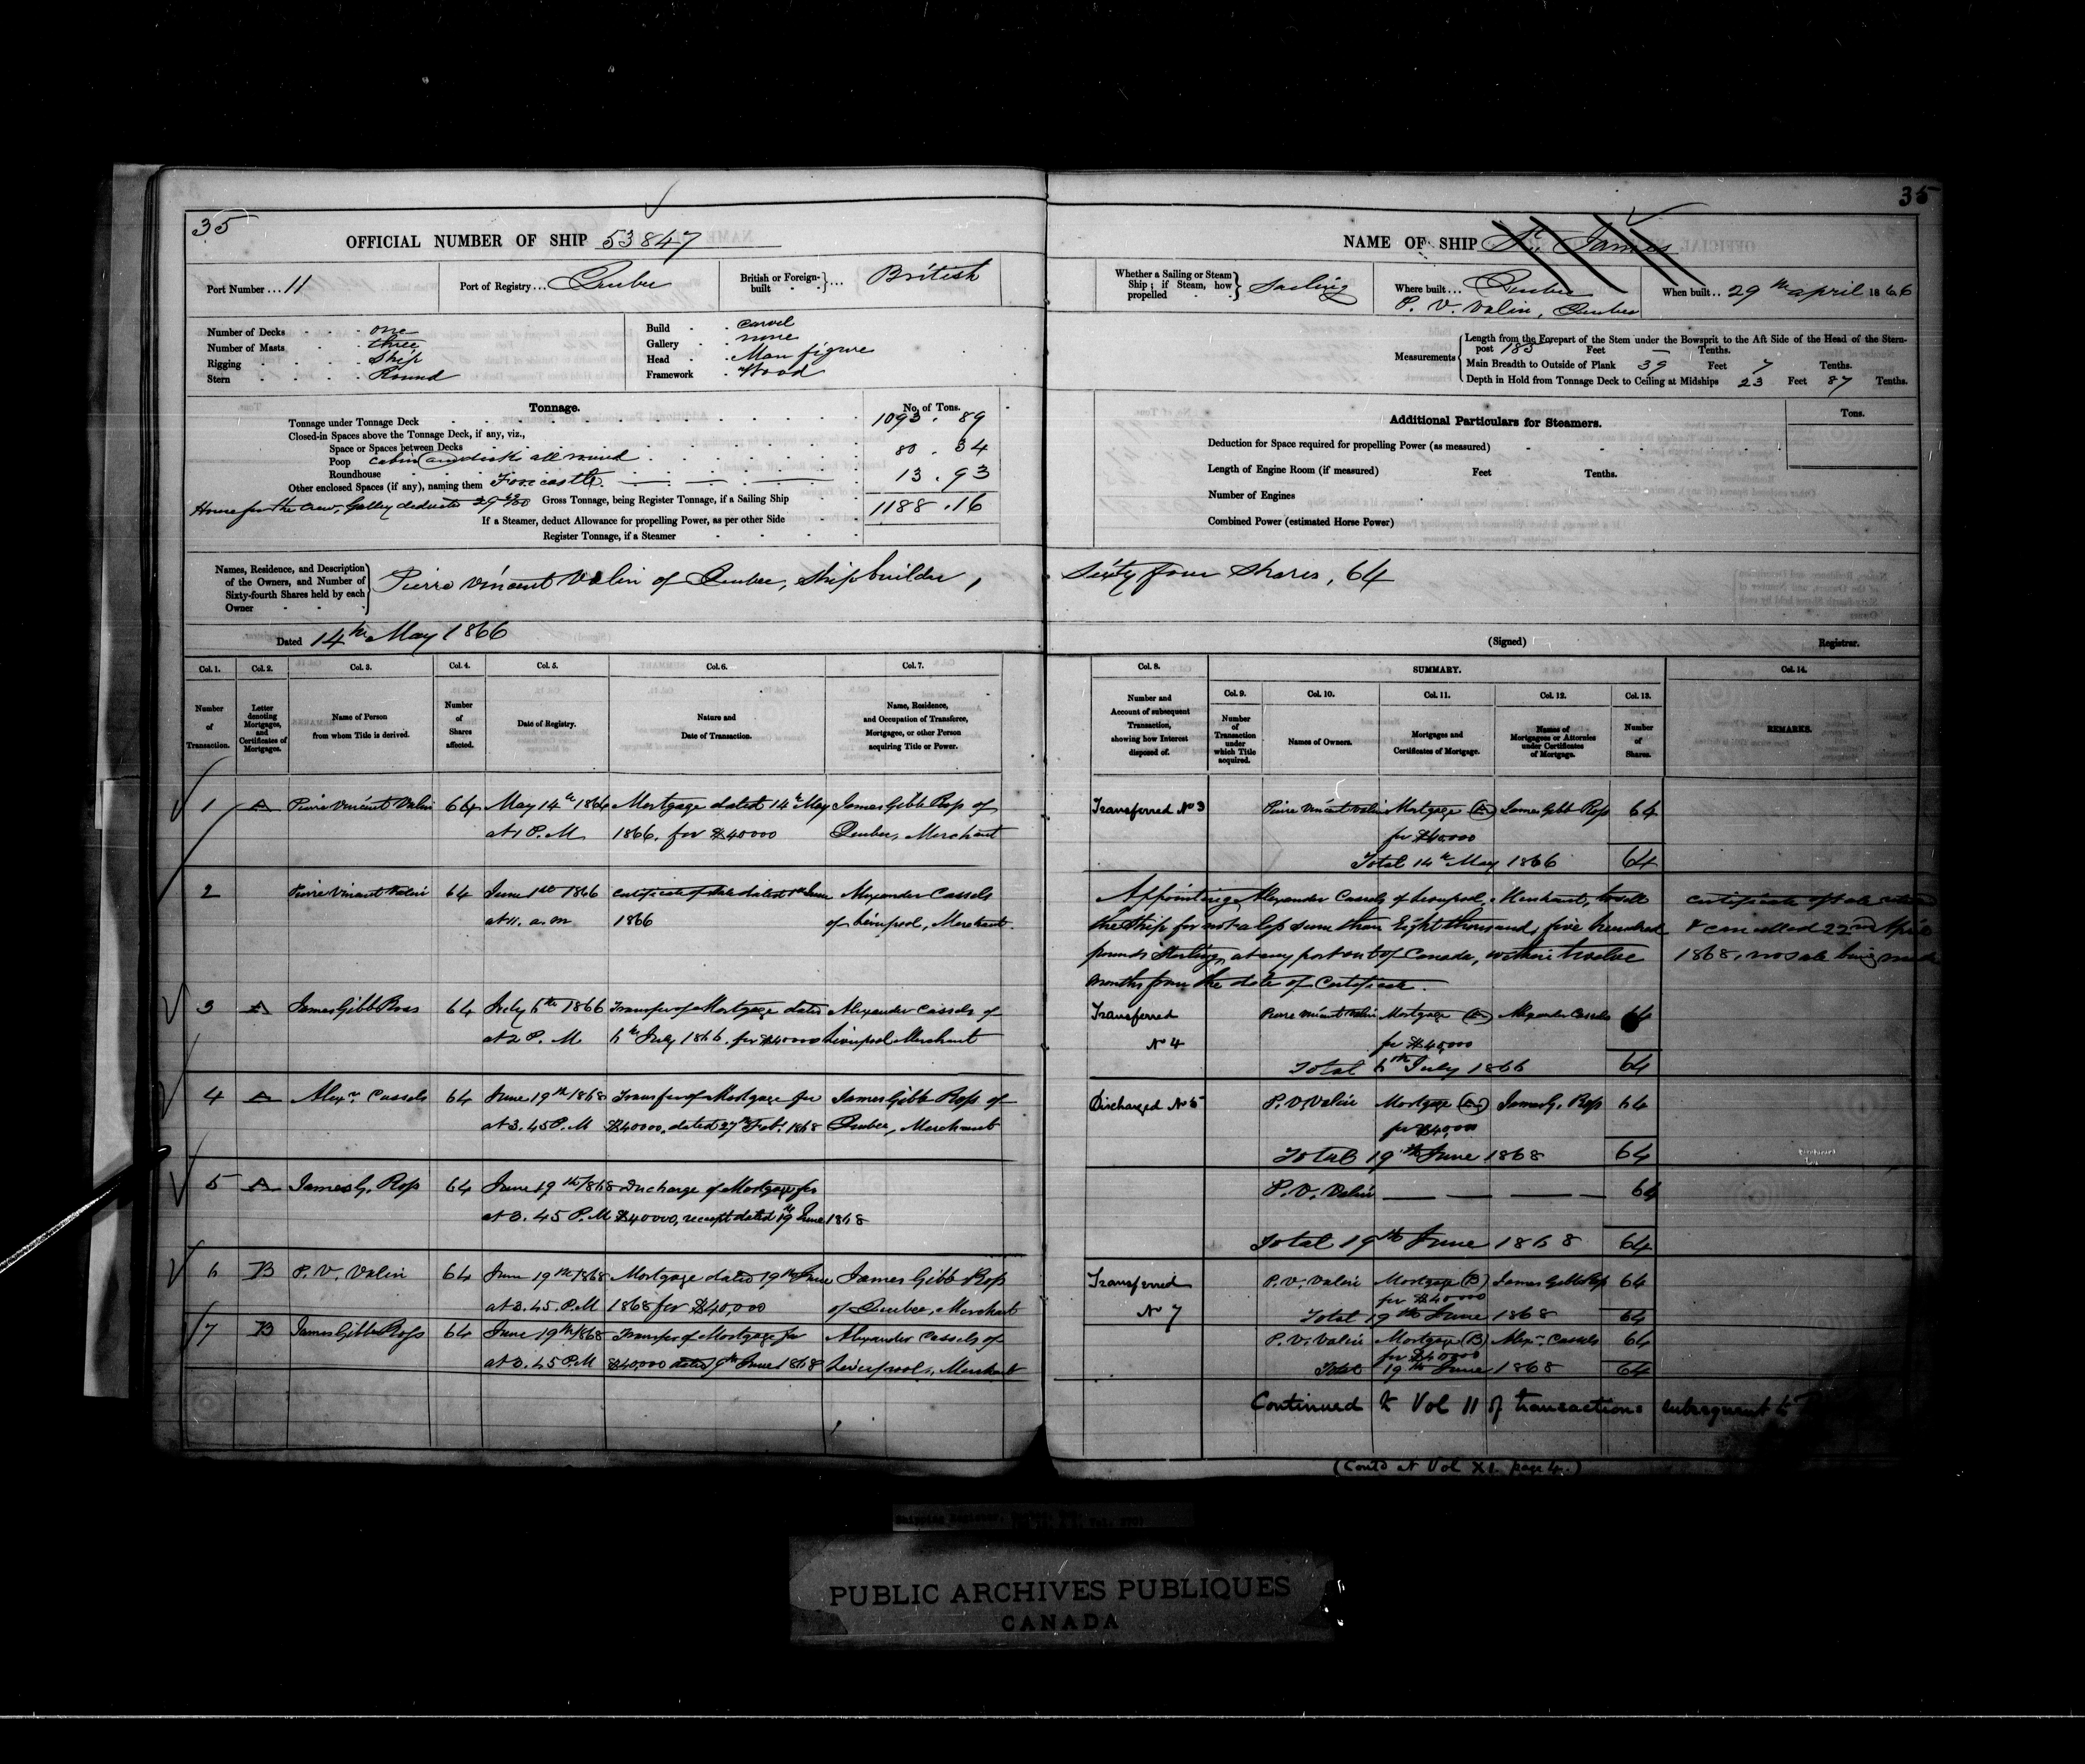 35
OFFICIAL NUMBER OF SHIP 53847
Port Number... 11
Port of Registry... Quebec
British or Foreign-built ... British
Number of Decks one
Number of Masts three
Rigging Ship
Stern Round
Build carvel
Gallery none
Head Man figure
Framework Wood
Tonnage. No. of Tons.
Tonnage under Tonnage Deck 1093 . 89
Closed-in Spaces above the Tonnage Deck, if any, viz.,
Space or Spaces between Decks
Poop cabin all round 80 . 34
Roundhouse
Other enclosed Spaces (if any), naming them Forecastle 13 . 93
House for the Crew, Galley
Gross Tonnage, being Register Tonnage, if a Sailing Ship 1188 . 16
If a Steamer, deduct Allowance for propelling Power, as per other Side
Register Tonnage, if a Steamer
Names, Residence, and Description of the Owners, and Number of Sixty-fourth Shares held by each Owner
Pierre Vincent Valin of Quebec, Shipbuilder,
Dated 14th May 1866
Col. 1. Col. 2. Col. 3. Col. 4. Col. 5. Col. 6. Col. 7.
Number of Transaction.
Letter denoting Mortgages, and Certificates of Mortgages.
Name of Person from whom Title is derived.
Number of Shares affected.
Date of Registry.
Nature and Date of Transaction.
Name, Residence, and Occupation of Transferee, Mortgagee, or other Person acquiring Title or Power.
1 A Pierre Vincent Valin 64 May 14th 1866 Mortgage dated 14th May James Gibb Ross of
at 1 P.M 1866, for $40000 Quebec, Merchant
2 Pierre Vincent Valin 64 June 1st 1866 Certificate of Sale dated 1st June Alexander Cassels
at 11. a.m 1866 of Liverpool, Merchant.
3 A James Gibb Ross 64 July 6th 1866 Transfer of Mortgage dated Alexander Cassels of
at 2 P. M 6th July 1866, for $40000 Liverpool Merchant
4 A Alexr. Cassels 64 June 19th 1868 Transfer of Mortgage for James Gibb Ross of
at 3.45 P.M $40000, dated 27th Feby 1868 Quebec, Merchant
5 A James G. Ross 64 June 19th 1868 Discharge of Mortgage for
at 3.45 P.M $40000, receipt dated 19th June 1868
6 B P. V. Valin 64 June 19th 1868 Mortgage dated 19th June James Gibb Ross
at 3.45. P.M 1868 for $40,000 of Quebec, Merchant
7 B James Gibb Ross 64 June 19th 1868 Transfer of Mortgage for Alexander Cassels of
at 3.45 P.M $40,000 dated 19th June 1868 Liverpool, Merchant
35
NAME OF SHIP St. James
Whether a Sailing or Steam Ship; if Steam, how propelled Sailing
Where built... Quebec
P. V. Valin, Quebec
When built.. 29th April 1866
Measurements
Length from the Forepart of the Stem under the Bowsprit to the Aft Side of the Head of the Stern-
post 185 Feet — Tenths.
Main Breadth to Outside of Plank 39 Feet 7 Tenths.
Depth in Hold from Tonnage Deck to Ceiling at Midships 23 Feet 87 Tenths.
Additional Particulars for Steamers. Tons.
Deduction for Space required for propelling Power (as measured)
Length of Engine Room (if measured) Feet Tenths.
Number of Engines
Combined Power (estimated Horse Power)
Sixty four Shares, 64
(Signed) Registrar.
Col. 8. SUMMARY. Col. 14.
Col. 9. Col. 10. Col. 11. Col. 12. Col. 13.
Number and Account of subsequent Transaction, showing how Interest disposed of.
Number of Transaction under which Title acquired.
Names of Owners.
Mortgages and Certificates of Mortgage.
Names of Mortgagees or Attornies under Certificates of Mortgage.
Number of Shares.
REMARKS.
Transferred No 3 Pierre Vincent Valin Mortgage (A) James Gibb Ross 64
for $40000
Total 14th May 1866 64
Appointing Alexander Cassels of Liverpool, Merchant, to sell
the Ship for not a less sum than Eight thousand, five hundred
pounds Sterling, at any port out of Canada, within twelve
months from the date of Certificate.
Certificate of Sale
& cancelled 22nd April
1868, no sale being made
Transferred Pierre Vincent Valin Mortgage (A) Alexander Cassels 64
No 4 for $40,000
Total 6th July 1866 64
Discharged No 5 P. V. Valin Mortgage (A) James G. Ross 64
for $40,000
Total 19th June 1868 64
P. V. Valin — — — — 64
Total 19th June 1868 64
Transferred P. V. Valin Mortgage (B) James Gibb Ross 64
for $40000
No 7 Total 19th June 1868 64
P. V. Valin Mortgage (B) Alexr. Cassels 64
for $40000
Total 19th June 1868 64
Continued to Vol 11 of transactions subsequent to
(Contd at Vol XI. page 4.)
Shipping Register,
PUBLIC ARCHIVES PUBLIQUES
CANADA